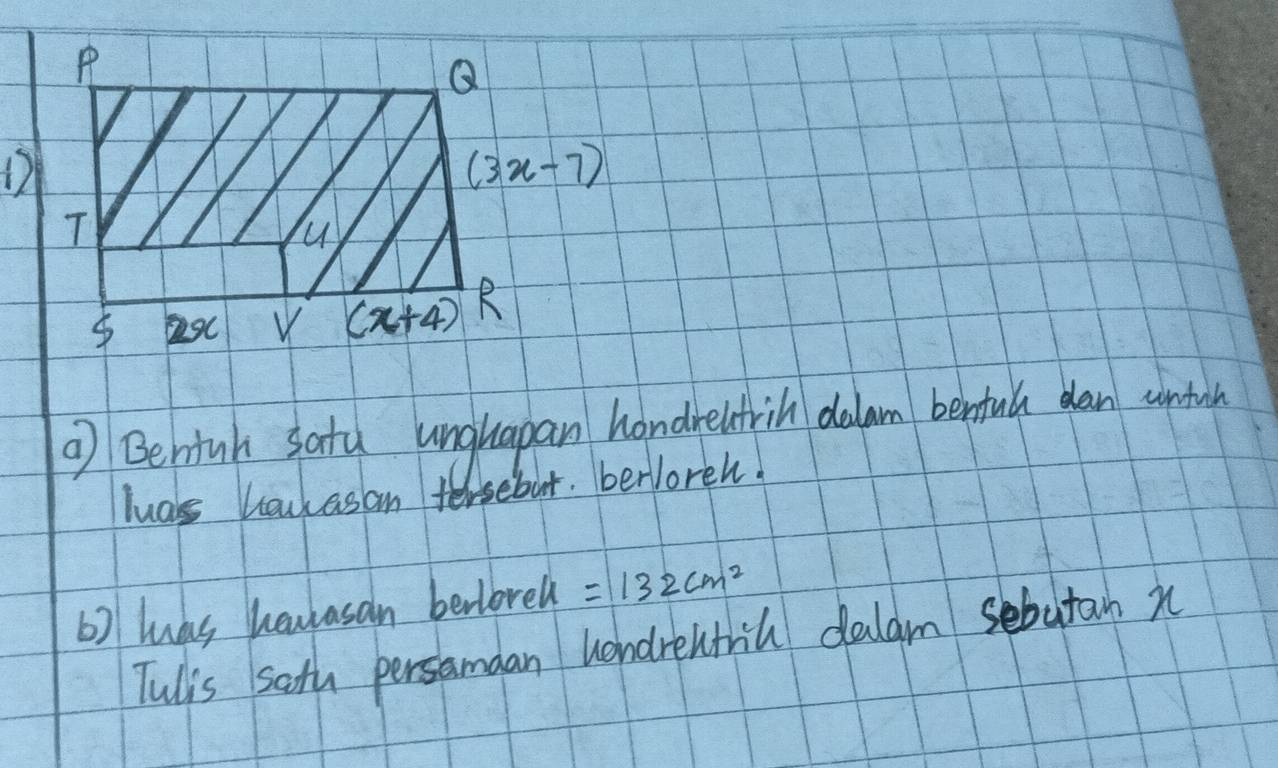 P
Q
1)
(3x-7)
T
U
S
2x
V
(x+4)
R
a) Bentuk satu ungkapan kondrektrik dalam bentuk dan untuk
luas kawasan tersebut. berlorek.
b) Luas kawasan berlorek = 132 cm²
Tulis satu persamaan kondrektrik dalam sebutan x